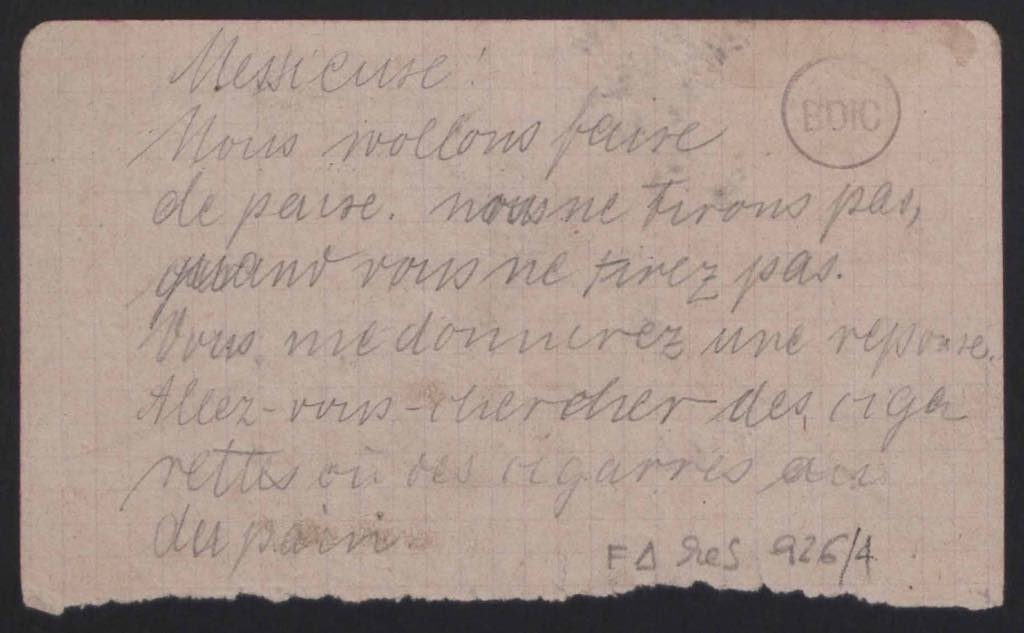 Messieuse!
BDIC
Nous wollons faire
de paire. nous ne tirons pas,
quand vous ne tirez pas.
Vous me donnerez une reponse.
Allez-vous-chercher des ciga
rettes où des cigarres
du pain.
F∆ Res 926/4